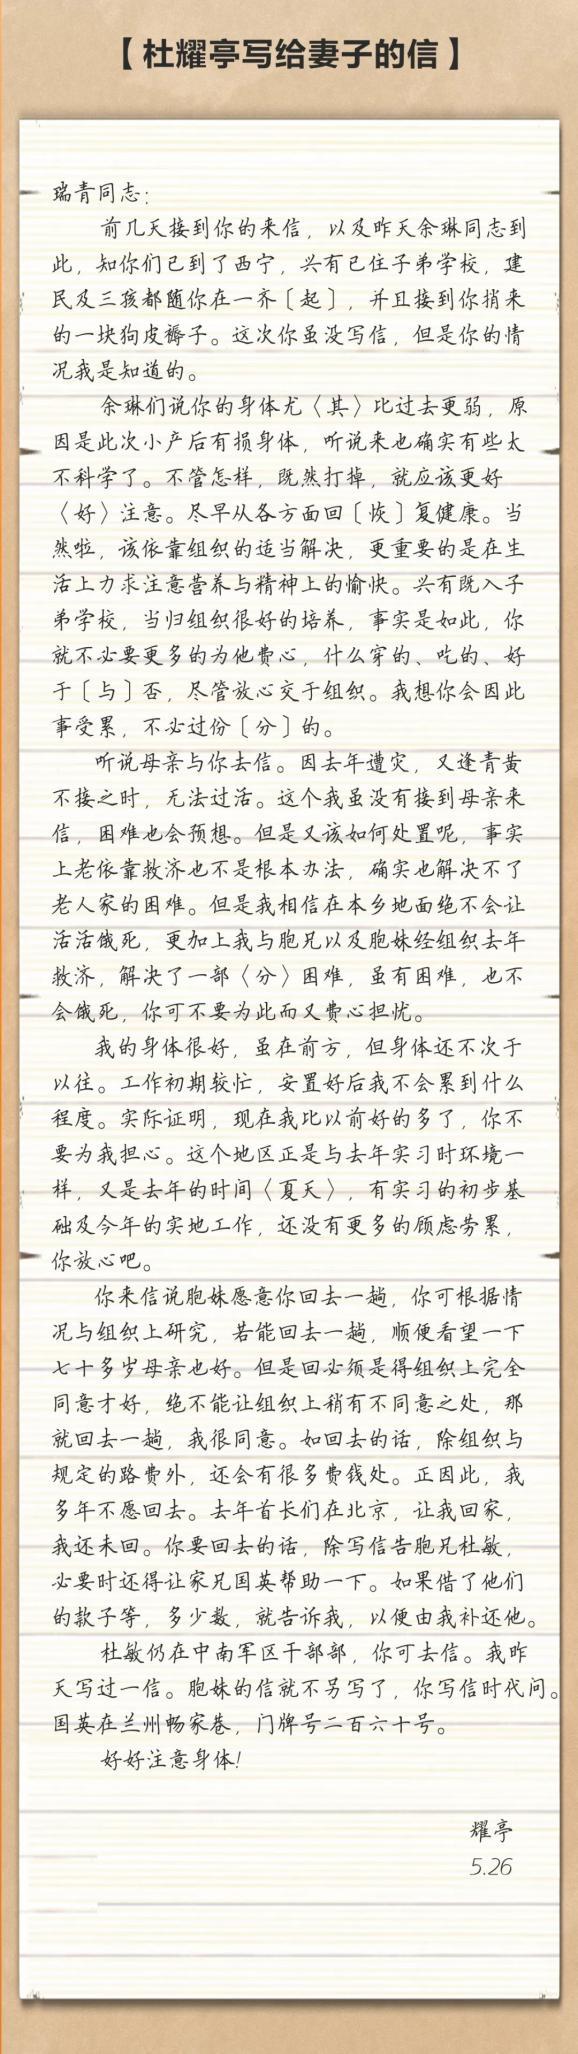 【杜耀亭写给妻子的信】
瑞青同志：
前几天接到你的来信，以及昨天余琳同志到
此，知你们已到了西宁，兴有已住子弟学校，建
民及三孩都随你在一齐〔起〕，并且接到你捎来
的一块狗皮褥子。这次你虽没写信，但是你的情
况我是知道的。
余琳们说你的身体尤〈其〉比过去更弱，原
因是此次小产后有损身体，听说来也确实有些太
不科学了。不管怎样，既然打掉，就应该更好
〈好〉注意。尽早从各方面回〔恢〕复健康。当
然啦，该依靠组织的适当解决，更重要的是在生
活上力求注意营养与精神上的愉快。兴有既入子
弟学校，当归组织很好的培养，事实是如此，你
就不必要更多的为他费心，什么穿的、吃的、好
于〔与〕否，尽管放心交于组织。我想你会因此
事受累，不必过份〔分〕的。
听说母亲与你去信。因去年遭灾，又逢青黄
不接之时，无法过活。这个我虽没有接到母亲来
信，困难也会预想。但是又该如何处置呢，事实
上老依靠救济也不是根本办法，确实也解决不了
老人家的困难。但是我相信在本乡地面绝不会让
活活饿死，更加上我与胞兄以及胞妹经组织去年
救济，解决了一部〈分〉困难，虽有困难，也不
会饿死，你可不要为此而又费心担忧。
我的身体很好，虽在前方，但身体还不次于
以往。工作初期较忙，安置好后我不会累到什么
程度。实际证明，现在我比以前好的多了，你不
要为我担心。这个地区正是与去年实习时环境一
样，又是去年的时间〈夏天〉，有实习的初步基
础及今年的实地工作，还没有更多的顾虑劳累，
你放心吧。
你来信说胞妹愿意你回去一趟，你可根据情
况与组织上研究，若能回去一趟，顺便看望一下
七十多岁母亲也好。但是回必须是得组织上完全
同意才好，绝不能让组织上稍有不同意之处，那
就回去一趟，我很同意。如回去的话，除组织与
规定的路费外，还会有很多费钱处。正因此，我
多年不愿回去。去年首长们在北京，让我回家，
我还未回。你要回去的话，除写信告胞兄杜敏，
必要时还得让家兄国英帮助一下。如果借了他们
的款子等，多少数，就告诉我，以便由我补还他。
杜敏仍在中南军区干部部，你可去信。我昨
天写过一信。胞妹的信就不另写了，你写信时代问。
国英在兰州畅家巷，门牌号二百六十号。
好好注意身体！
耀亭
5.26